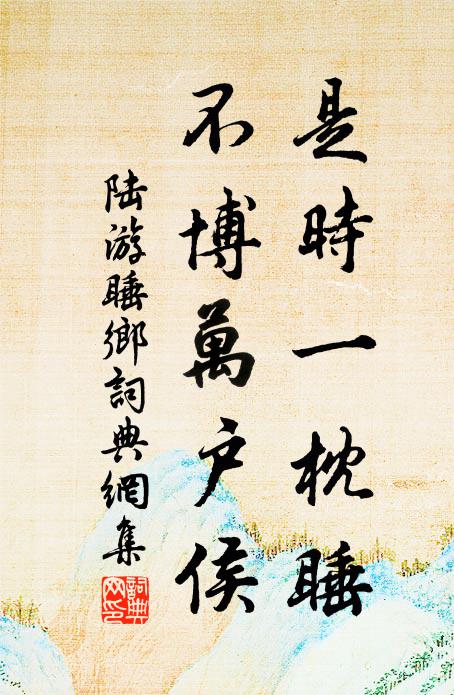 是時一枕睡
不博萬戶侯
陸游睡鄉詞典網集
詞典网印